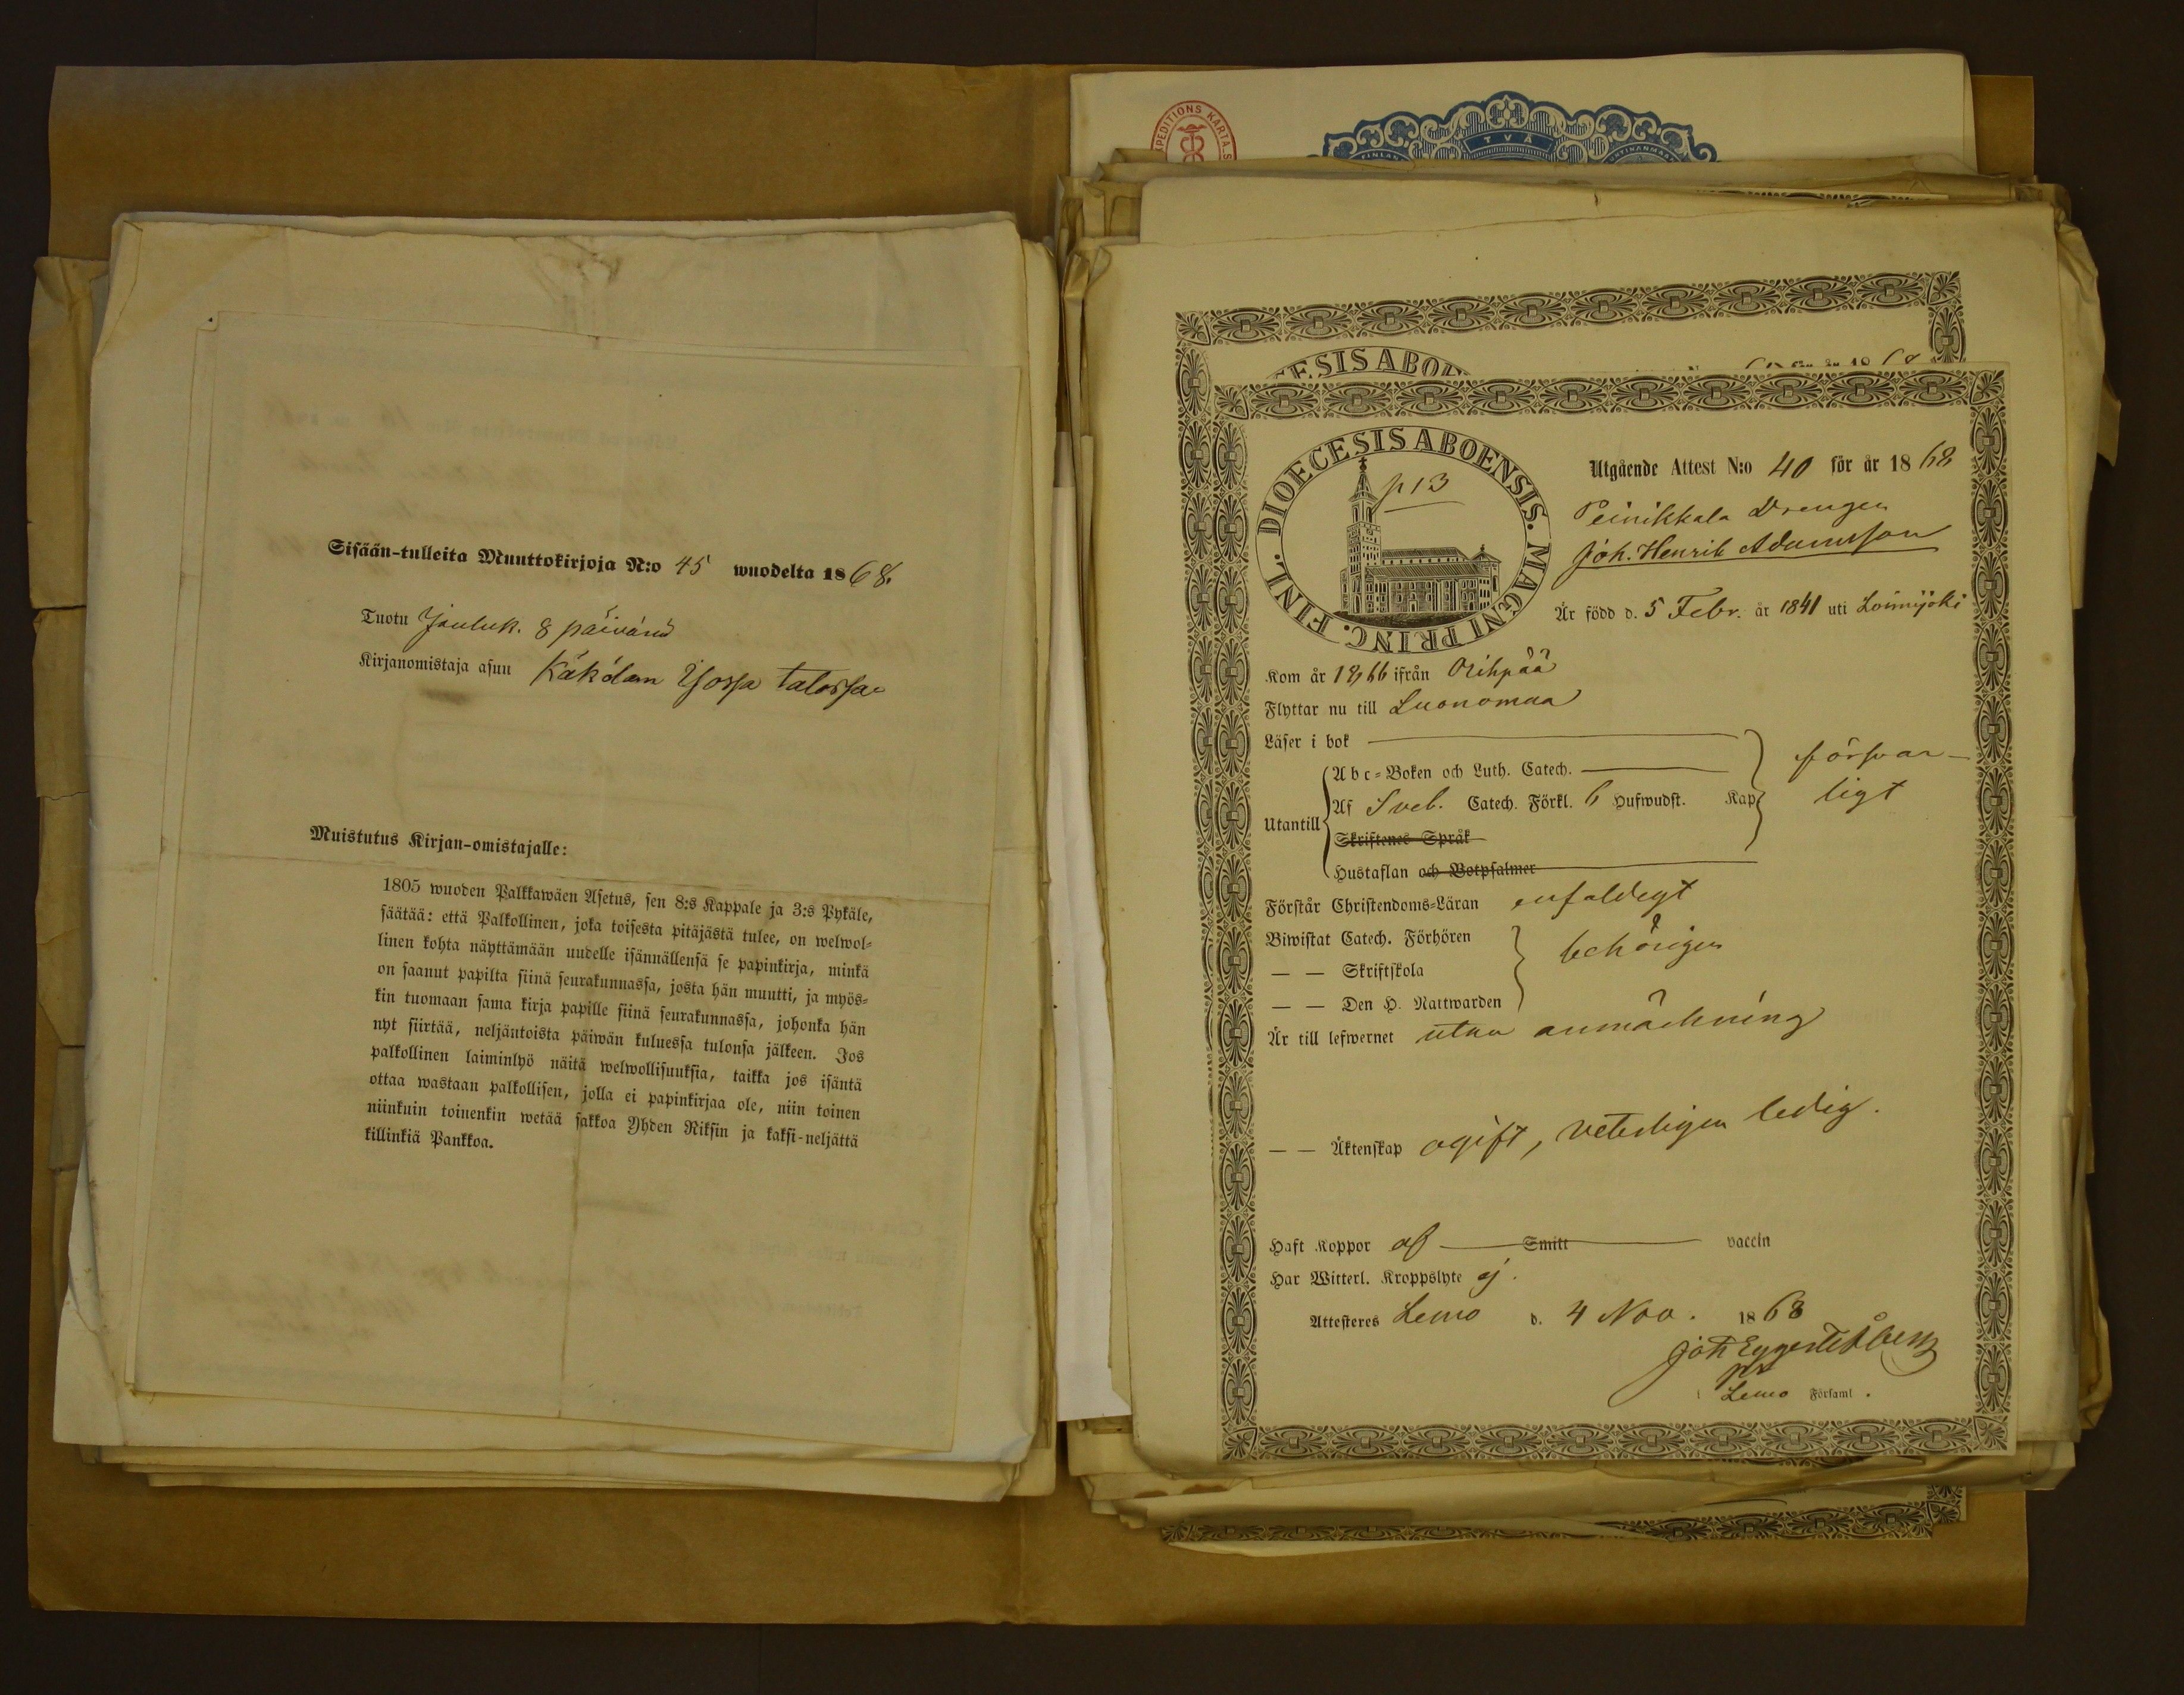 Sisään-tulleita Muuttokirjoja N:o 45 wuodelta 1868.
Tuotu Jouluk. 8 päivänä
Kirjanomistaja asuu Käkölan Isossa talossa
Muistutus Kirjan-omistajalle:
1805 wuoden Palkkawäen Asetus, sen 8:s Kappale ja 3:s Pykäle,
säätää: että Palkollinen, joka toisesta pitäjästä tulee, on welwol=
linen kohta näyttämään uudelle isännällensä se papinkirja, minkä
on saanut papilta siinä seurakunnassa, josta hän muutti, ja myös=
kin tuomaan sama kirja papille siinä seurakunnassa, johonka hän
nyt siirtää, neljäntoista päiwän kuluessa tulonsa jälkeen. Jos
palkollinen laiminlyö näitä welwollisuuksia, taikka jos isäntä
ottaa wastaan palkollisen, jolla ei papinkirjaa ole, niin toinen
niinkuin toinenkin wetää sakkoa Yhden Riksin ja kaksi-neljättä
killinkiä Pankkoa.
EXPEDITIONS KARTA.S
TVÅ
DIOECESIS ABOENSIS. MAGNI PRINC. FINL.
p 13
Utgående Attest N:o 40 för år 1868
Peinikkala Drengen
Joh. Henrik Adamsson
Är född d. 5 Febr. år 1841 uti Loimijoki
Kom år 1866 ifrån Orihpää
Flyttar nu till Luonomaa
Läser i bok
försvar-
ligt
Utantill
Abc=Boken och Luth. Catech.
Af Sveb. Catech. Förkl. 6 Hufwudst. Kap
Skriftenes Språk
Hustaflan och Botpsalmer
Förstår Christendoms=Läran enfaldigt
Biwistat Catech. Förhören
behörigen
— — Skriftskola
— — Den H. Nattwarden
Är till lefwernet utan anmärkning
— — Äktenskap ogift, veterligen ledig.
Haft Koppor af Smitt vaccin
Har Witterl. Kroppslyte ej.
Attesteres Lemo d. 4 Nov. 1868
i Lemo Församl.